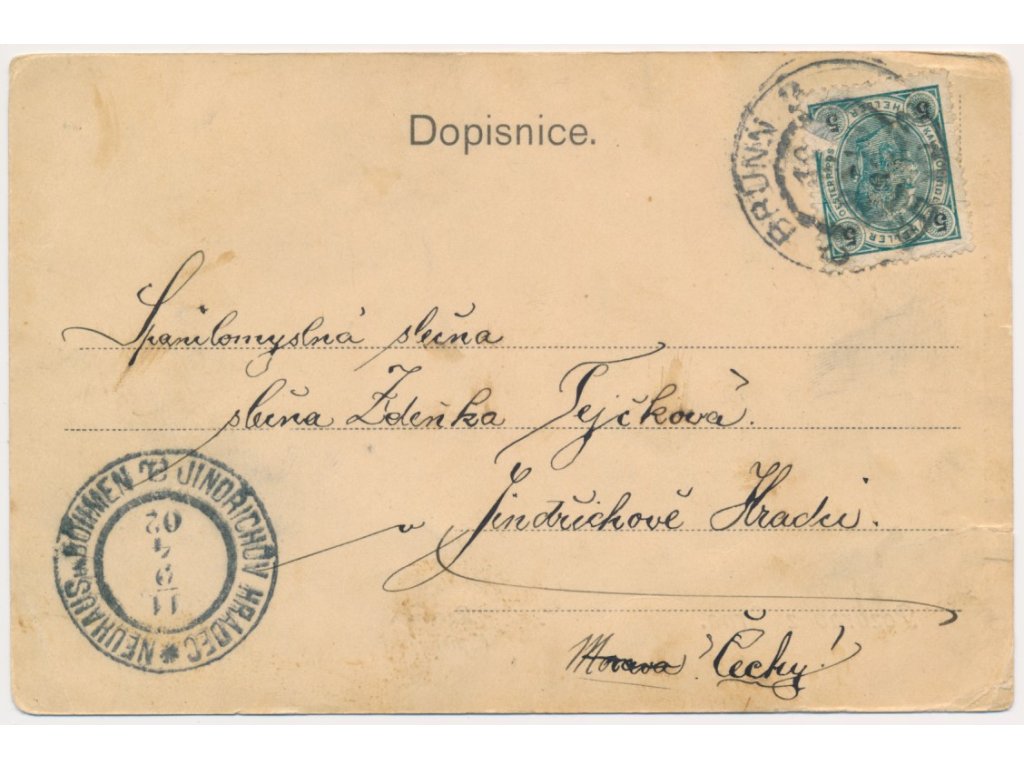 Dopisnice.
BRÜNN
5 HELLER 5
5 HELLER 5
Spanilomyslná slečna
slečna Zdeňka Tejčková.
v Jindřichově Hradci.
Morava? Čechy!
NEUHAUS in BÖHMEN JINDŘICHŮV HRADEC *
11
9 4
02